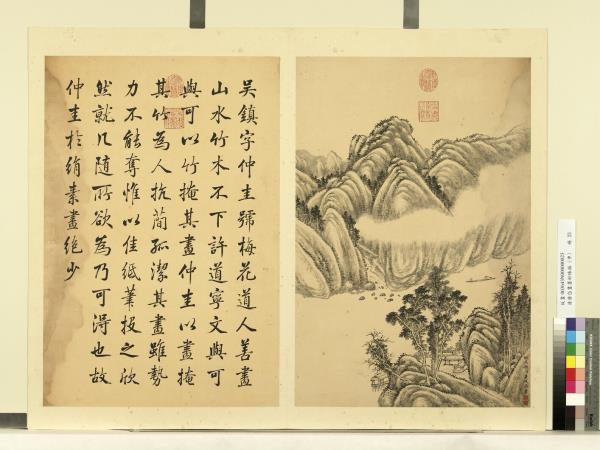 吳鎮字仲圭號梅花道人善畫
山水竹木不下許道寧文與可
與可以竹掩其畫仲圭以畫掩
其竹為人抗簡孤潔其畫雖勢
力不能奪惟以佳紙筆投之欣
然就几隨所欲為乃可得也故
仲圭於絹素畫絕少